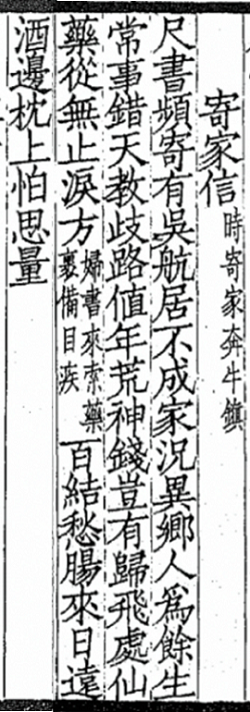 寄家信 時寄家奔牛鎮
尺書頻寄有吳航居不成家況異鄉人爲餘生
常事錯天教歧路值年荒神錢豈有歸飛處仙
藥從無止淚方 婦書來索藥裹備目疾 百結愁腸來日遠
酒邊枕上怕思量